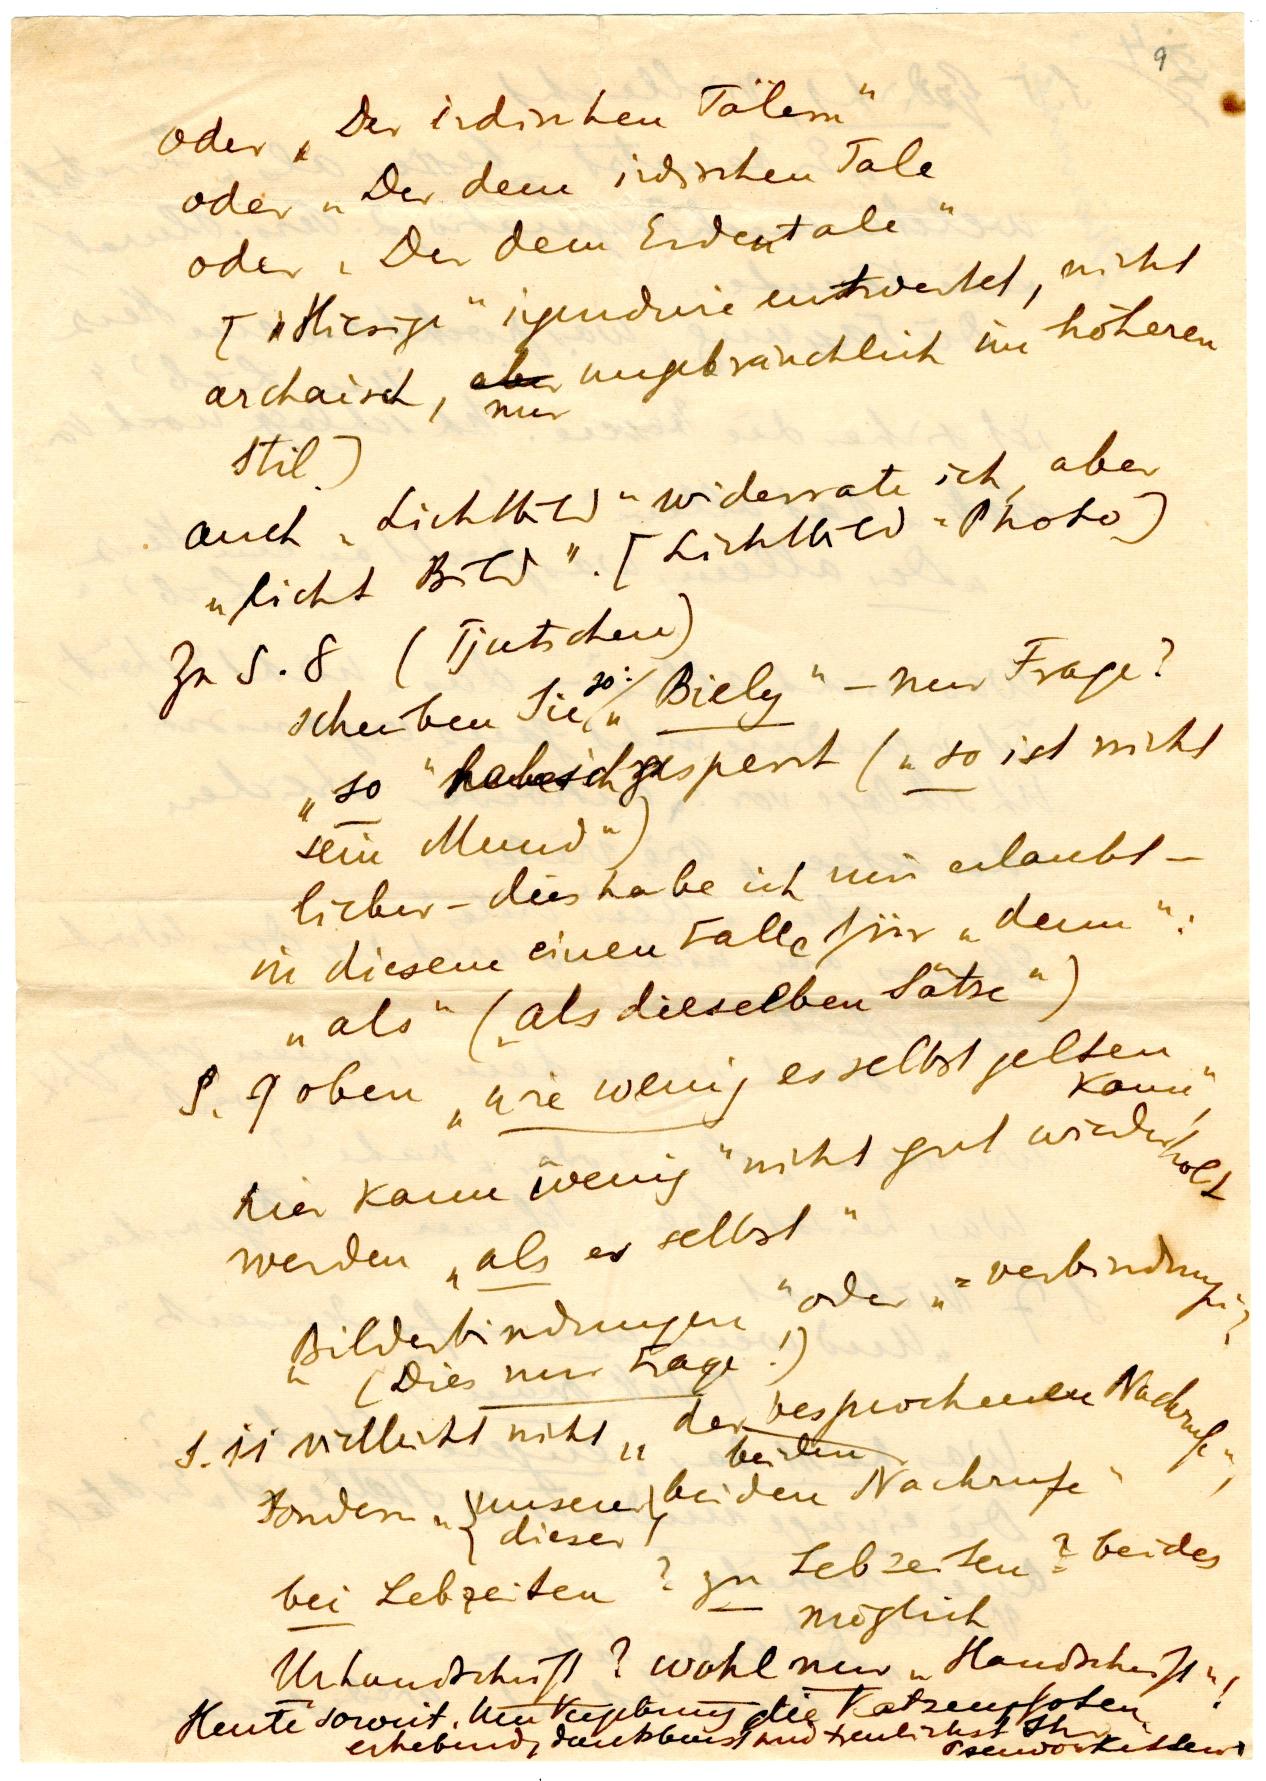 9
oder „Der irdischen Tälern“
oder „Der dem irdischen Tale
oder „Der dem Erdentale“
[„Hiesige“ irgendwie entwertet, nicht
archaisch, aber nur ungebräuchlich im höheren
Stil.]
auch „Lichtbild“ widerrate ich, aber
„licht Bild“. [Lichtbild = Photo]
Zu S. 8 (Tjutschew)
schreiben Sie so: „Biely“ – nur Frage?
„so“ habe ich gesperrt („so ist nicht
sein Mund“)
lieber – dies habe ich mir erlaubt –
in diesem einen Falle für „denn“:
„als“ („als dieselben Sätze“)
S. 9 oben „wie wenig es selbst gelten
kann“,
hier kann „wenig“ nicht gut wiederholt
werden „als es selbst“
„Bilderbindungen“ oder „=verbindungen“?
(Dies nur Frage!)
S. 11 vielleicht nicht „der besprochenen Nachrufe“,
beiden
sondern „{unserer} beiden Nachrufe“
{dieser}
bei Lebzeiten? zu Lebzeiten? beides
möglich
Urhandschrift? wohl nur „Handschrift“!
Heute soweit. Um Vergebung die Katzenpfoten
erhebend, dankbarst und treulichst Ihr